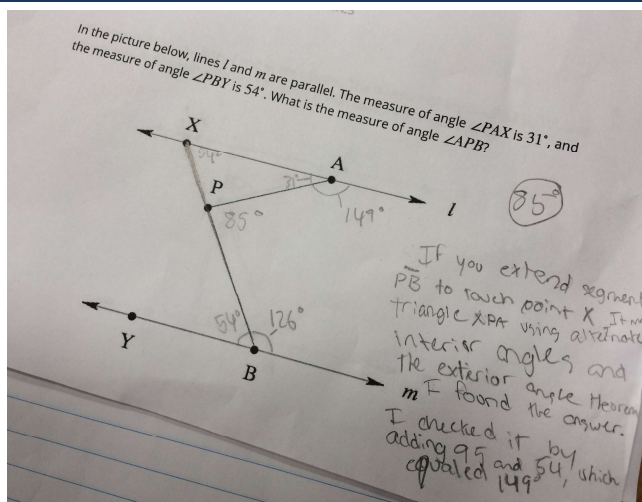 In the picture below, lines l and m are parallel. The measure of angle ∠PAX is 31°, and
the measure of angle ∠PBY is 54°. What is the measure of angle ∠APB?
X
54°
A
31°
P
l
85°
85°
149°
If you extend segment
PB to touch point X It
triangle XPA using alternate
interior angles and
the exterior angle theorem
I found the answer.
54°
126°
Y
B
m
I checked it by
adding 95 and 54, which
equaled 149°